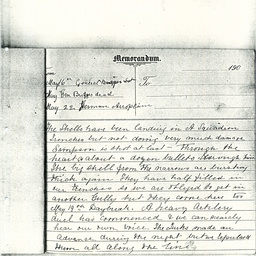 Memorandum.
190
To
May 22 German Aeroplane
The Shells have been landing in A Squadron
trenches but not doing very much damage
Sampson is shot at last - Through the
head about a dozen bullets through him
The big shells from the warships are bursting
thick again They have half filled in
our trenches so we are obliged to get in
another Gully but they come here too
May 19th Daybreak. A heavy Artillery
duel has commenced & we can scarcely
hear our own voice. The Turks made an
advance during the night but we repulsed
them all along the line